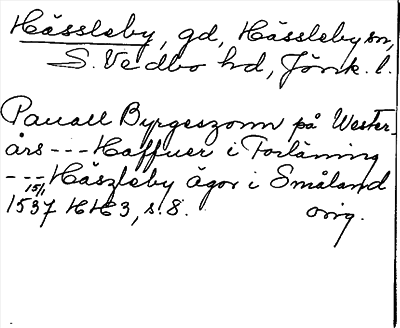 Hässleby, gd, Hässleby sn,
S. Vedbo hd, Jönk. l.
Pauall Byrgeszonn på Wester-
års --- Haffuer i Forläning
--- Häszleby ägor i Småland
15/1
1537 HH3, s. 8. orig.